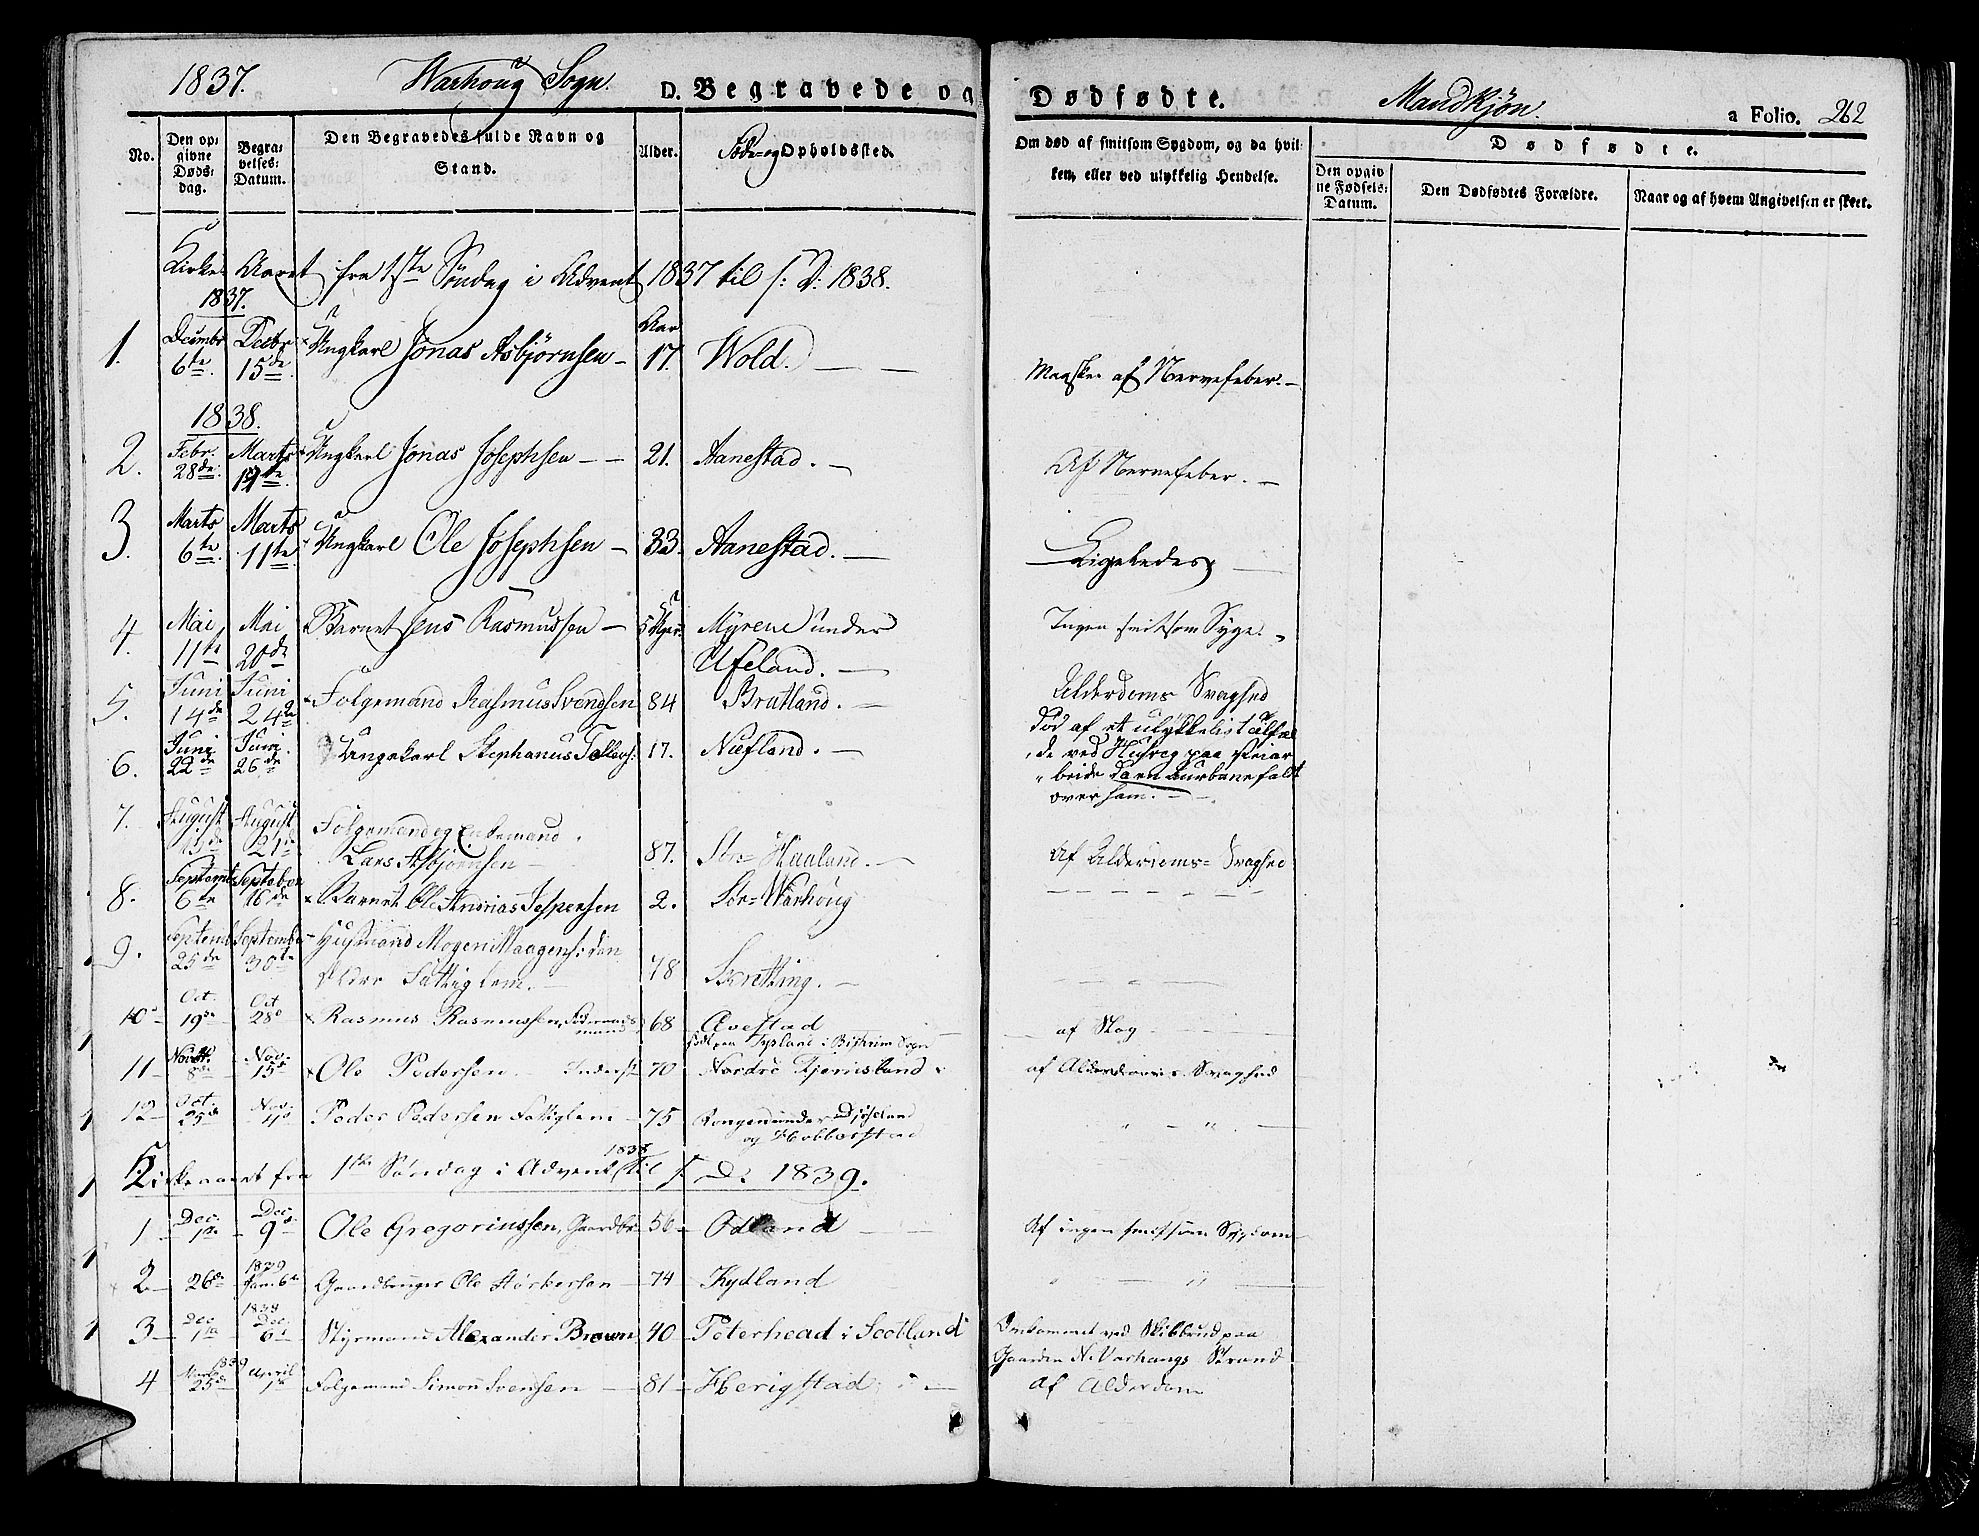 1837. Warhoug Sogn. D. Begravede og Dødfødte. Mandkjøn. a Folio. 262
No. Den opgivne Dødsdag. Begravelses-Datum. Den Begravedes fulde Navn og Stand. Alder. Føde- og Opholdssted. Om død af smitsom Sygdom, og da hvilken, eller ved ulykkelig Hendelse. Dødfødte.
Den opgivne Fødsels-Datum. Den Dødfødtes Forældre. Naar og af hvem Angivelsen er skeet.
Kirke-Aaret fra 1ste Søndag i Advent 1837 til s: D: 1838.
1837. Aar
1. Decembr 6te Decbr 15de Ungkarl Jonas Asbjørnsen 17. Wold. Maaskee af Nervefeber.
1838.
2. Febr. 28de Marts Ungkarl Jonas Josephsen 21. Aanestad. Af Nervefeber.
3. Marts 6te Marts 11te Ungkarl Ole Josephsen 33. Aanestad. Ligeledes
4. Mai 11te Mai 20de Barnet Jens Rasmussen 5 Uger Myrene under
Ufeland. Ingen smitsom Syge.
5. Juni 14de Juni 24de Folgemand Rasmus Svendsen 84 Bratland. Alderdoms Svaghed
6. Juni 22de Juni 26de Ungekarl Stephanus Tollevs: 17. Niefland. Død af et ulykkeligt Tilfæl-
de ved Husveg paa Veiar-
beide da en Aurbane faldt
over ham.
7. August August 21de Folgemand og Enkemand
Lars Asbjørnsen 87. Stor-Haaland. Af Alderdoms-Svaghed
8. Septemb 6te Septebr 16de Barnet Ole Andrias Jespersen 2. Sør-Warhoug
9. Septemb 25de Septembr 30te Husmand Mogens Maagens: den
Ældre Fattiglem. 78 Skretting.
10 Oct. 19de Oct 28de Rasmus Rasmussen, Føderaadsmand 68 Ævestad af Slag
født paa Tysland i Bjerkrim Sogn
11 Novbr. 8de Nov. 15de Ole Pedersen Inderst 70 Nordre Kjerresland af Alderdoms Svaghed
12 Oct. 25de Nov. 4de Peder Pedersen Fattiglem 75 Rongen under Dysland
og Hobberstad " "
Kirkeaaret fra 1ste Søndag i Advent 1838 til s. D: 1839.
1 Dec. 1te Dec. 9de Ole Gregoriussen, Gaardbr 56 Odland Af ingen smitsom Sygdom
2 26de 1839 Jan 6te Gaardbruger Ole Størkersen 74 Kydland " "
3 Dec 1te 1838 Dec. 6te Styrmand Alexander Brown 40 Peterhead i Scotland Omkommet ved Skibbrud paa
Gaarden N. Varhaugs Strand
4 1839 Marts 25de April 1te Folgemand Simon Svensen 81 Herigstad Af Alderdom